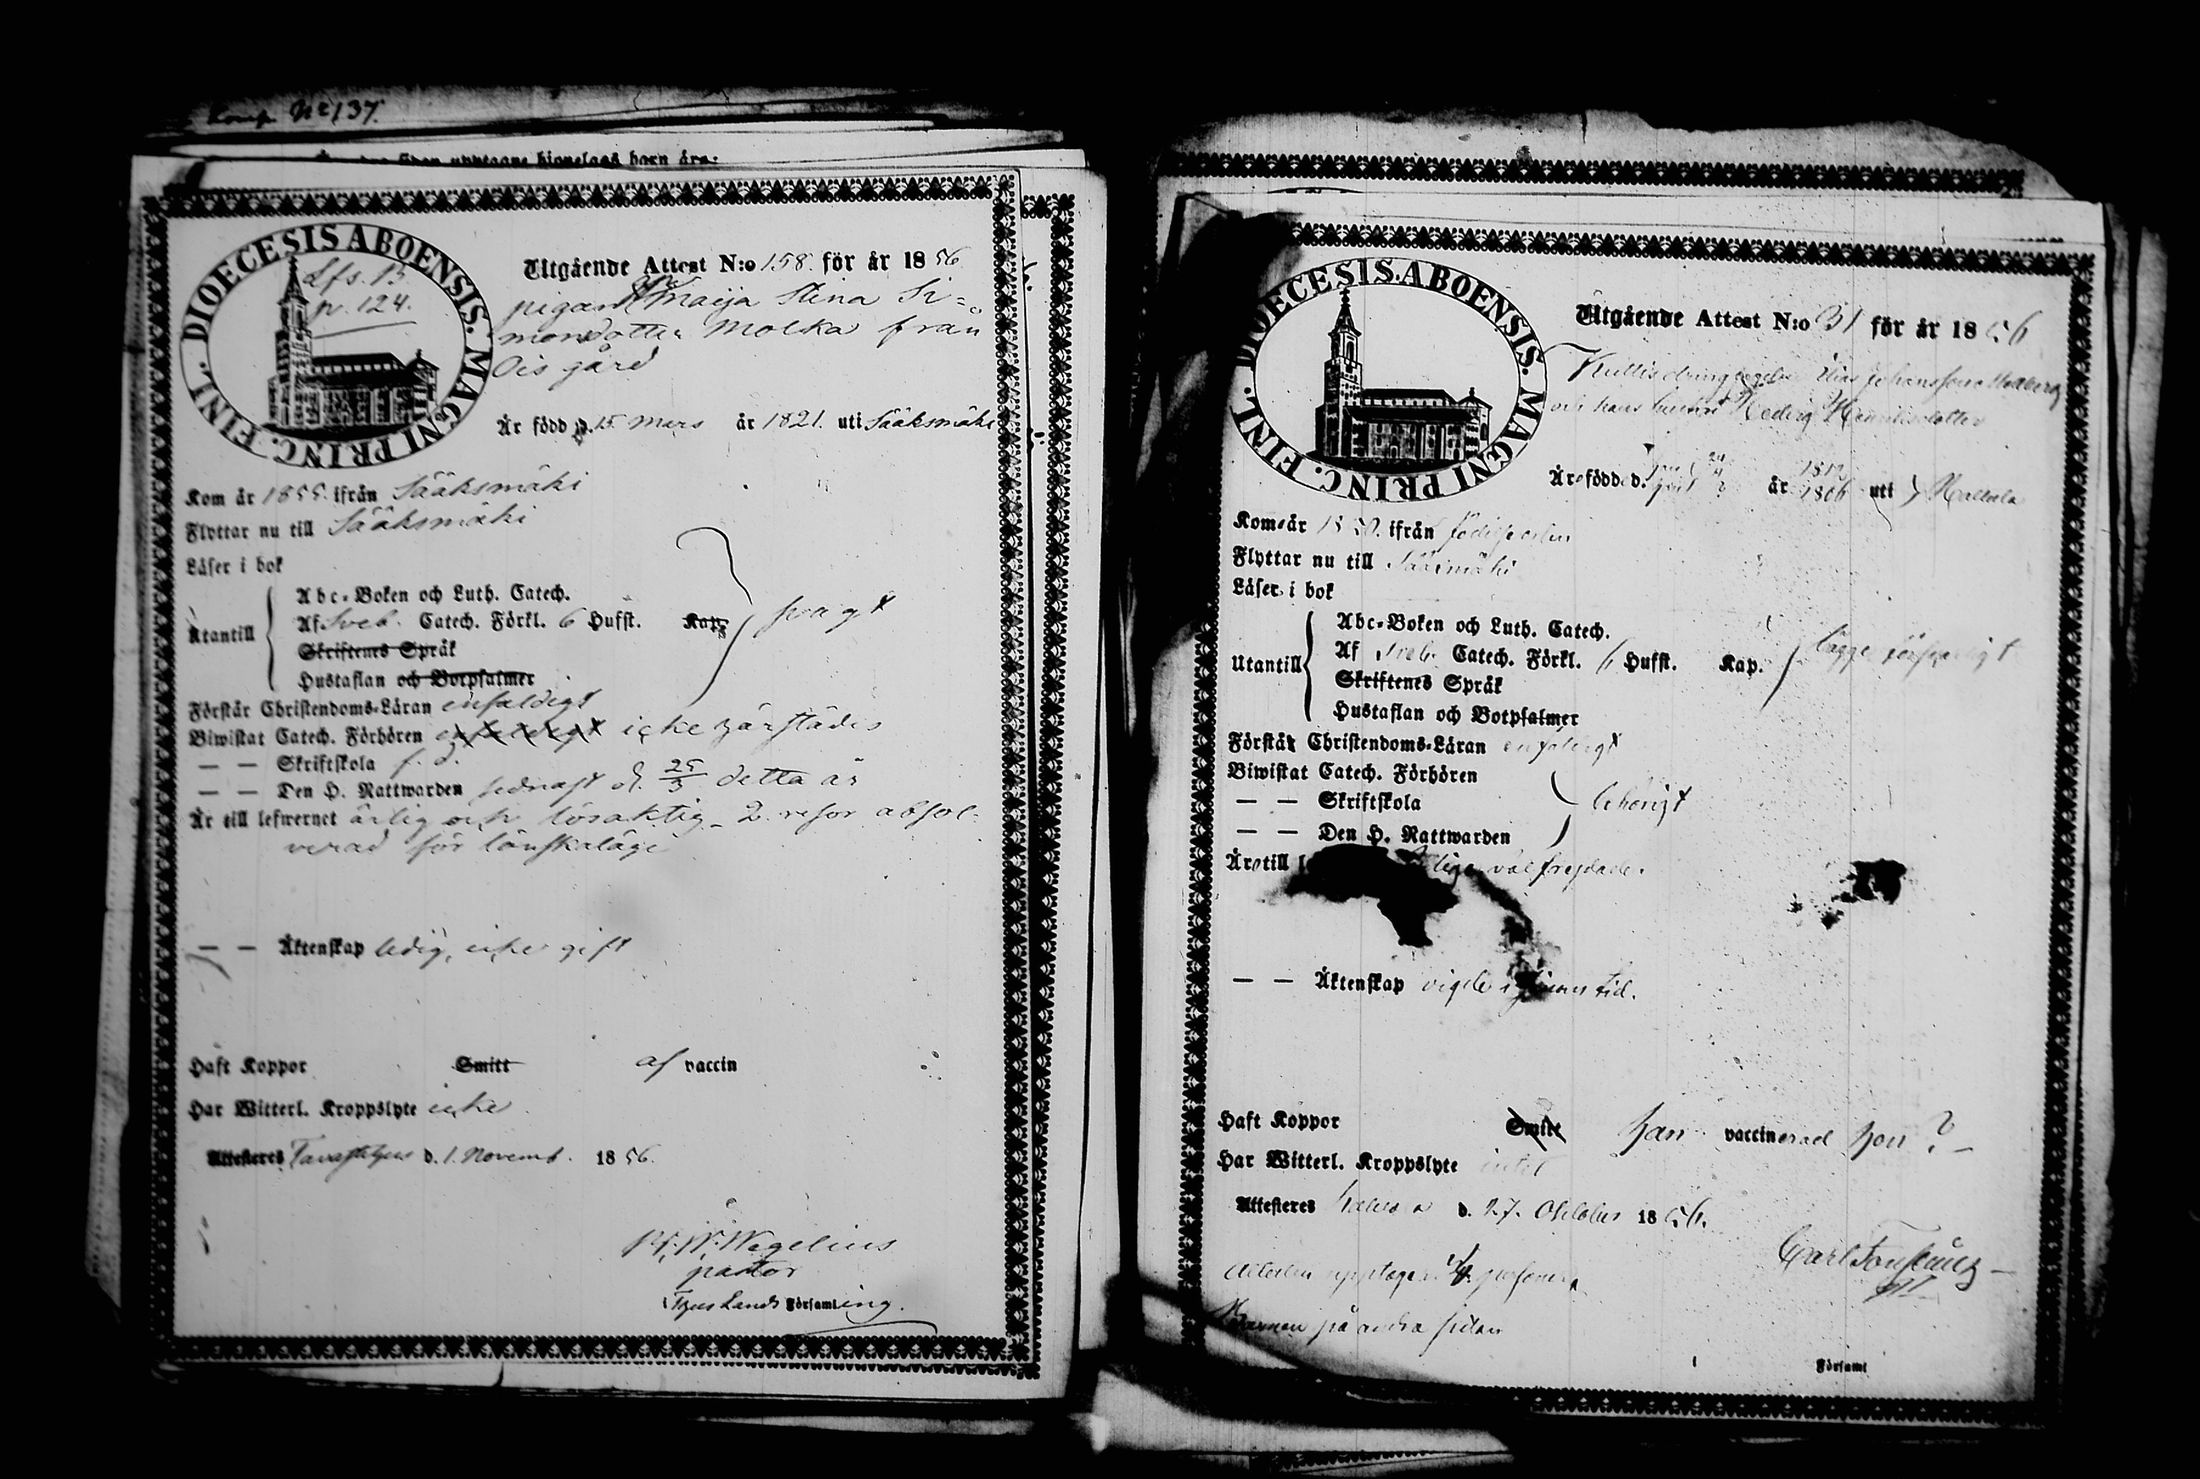 Komp. No 137.
DIOECESIS ABOENSIS. MAGNI PRINC. FINL.
Lfs. B
p. 124.
Utgående Attest N:o 158. för år 1856
pigan Maija Stina Si=
monsdotter Molka från
Ois gård
Är född d. 15 Mars år 1821. uti Sääksmäki
Kom år 1855. ifrån Sääksmäki
Flyttar nu till Sääksmäki
Läser i bok
Utantill
Abc-Boken och Luth. Catech.
Af Sveb. Catech. Förkl. 6 Hufst. Kap. svagt
Skriftenes Språk
Hustaflan och Botpsalmer
Förstår Christendoms-Läran enfaldigt
Biwistat Catech. Förhören enfaldigt icke härstädes
— — Skriftskola f. d.
— — Den H. Nattwarden sednast d. 25/3 detta år
Är till lefwernet ärlig och lösaktig, 2 resor absol-
verad för lönskaläge
— — Äktenskap ledig, icke gift
Haft Koppor Smitt af vaccin
Har Witterl. Kroppslyte icke
Attesteres Tavastehus d. 1. Novemb. 1856.
Wegelius
pastor
Thus Lands Församling.
DIOECESIS ABOENSIS. MAGNI PRINC. FINL.
Utgående Attest N:o 31 för år 1856
Johansson
och hans hustru Hedvig Henriksdotter
Äro födde d. år 1812 1806 uti Hattula
Kom år 1850. ifrån
Flyttar nu till Sääxmäki
Läser i bok
Utantill
Abc-Boken och Luth. Catech.
Af Sveb. Catech. Förkl. 6 Hufst. Kap. begge
Skriftenes Språk
Hustaflan och Botpsalmer
Förstår Christendoms-Läran enfaldigt
Biwistat Catech. Förhören
— — Skriftskola behörigt
— — Den H. Nattwarden
Äro till välfrejdade.
— — Äktenskap vigde i sinom tid.
Haft Koppor Smitt han vaccinerad hon ?
Har Witterl. Kroppslyte intet
Attesteres d. 27. October 1856.
Carl
Attesten upptager personer,
Barnen på andra sidan
Församl